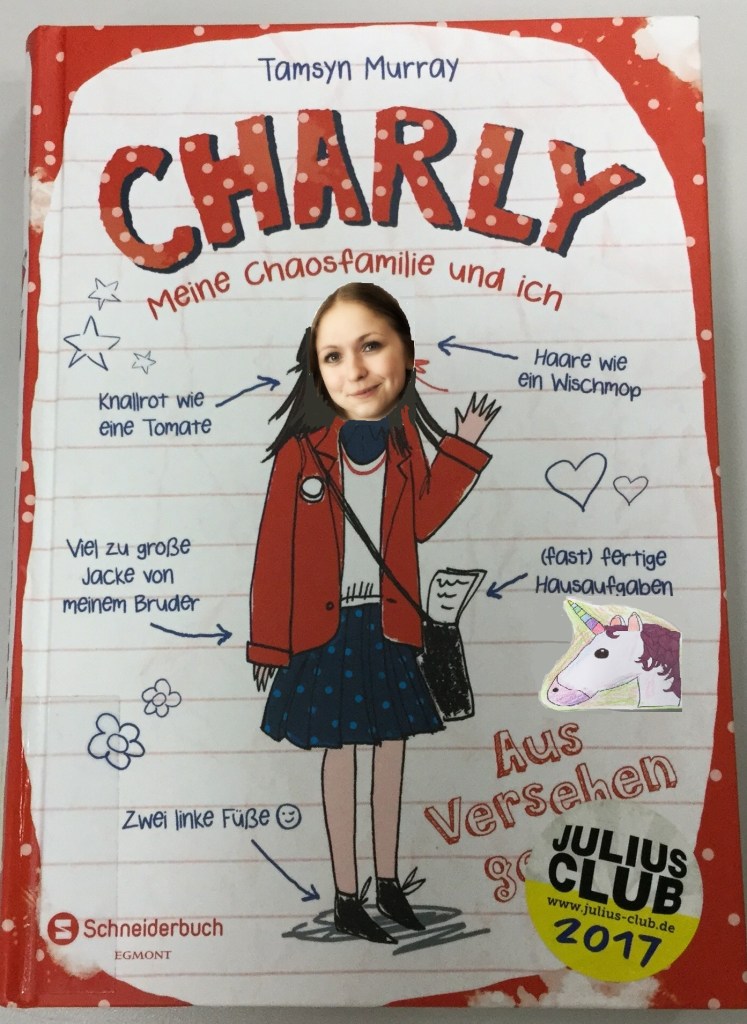 Tamsyn Murray
CHARLY
Meine Chaosfamilie und ich
Haare wie
ein Wischmop
Knallrot wie
eine Tomate
Viel zu große
Jacke von
meinem Bruder
(fast) fertige
Hausaufgaben
Zwei linke Füße
Aus
Versehen
JULIUS
CLUB
www.julius-club.de
2017
S Schneiderbuch
EGMONT